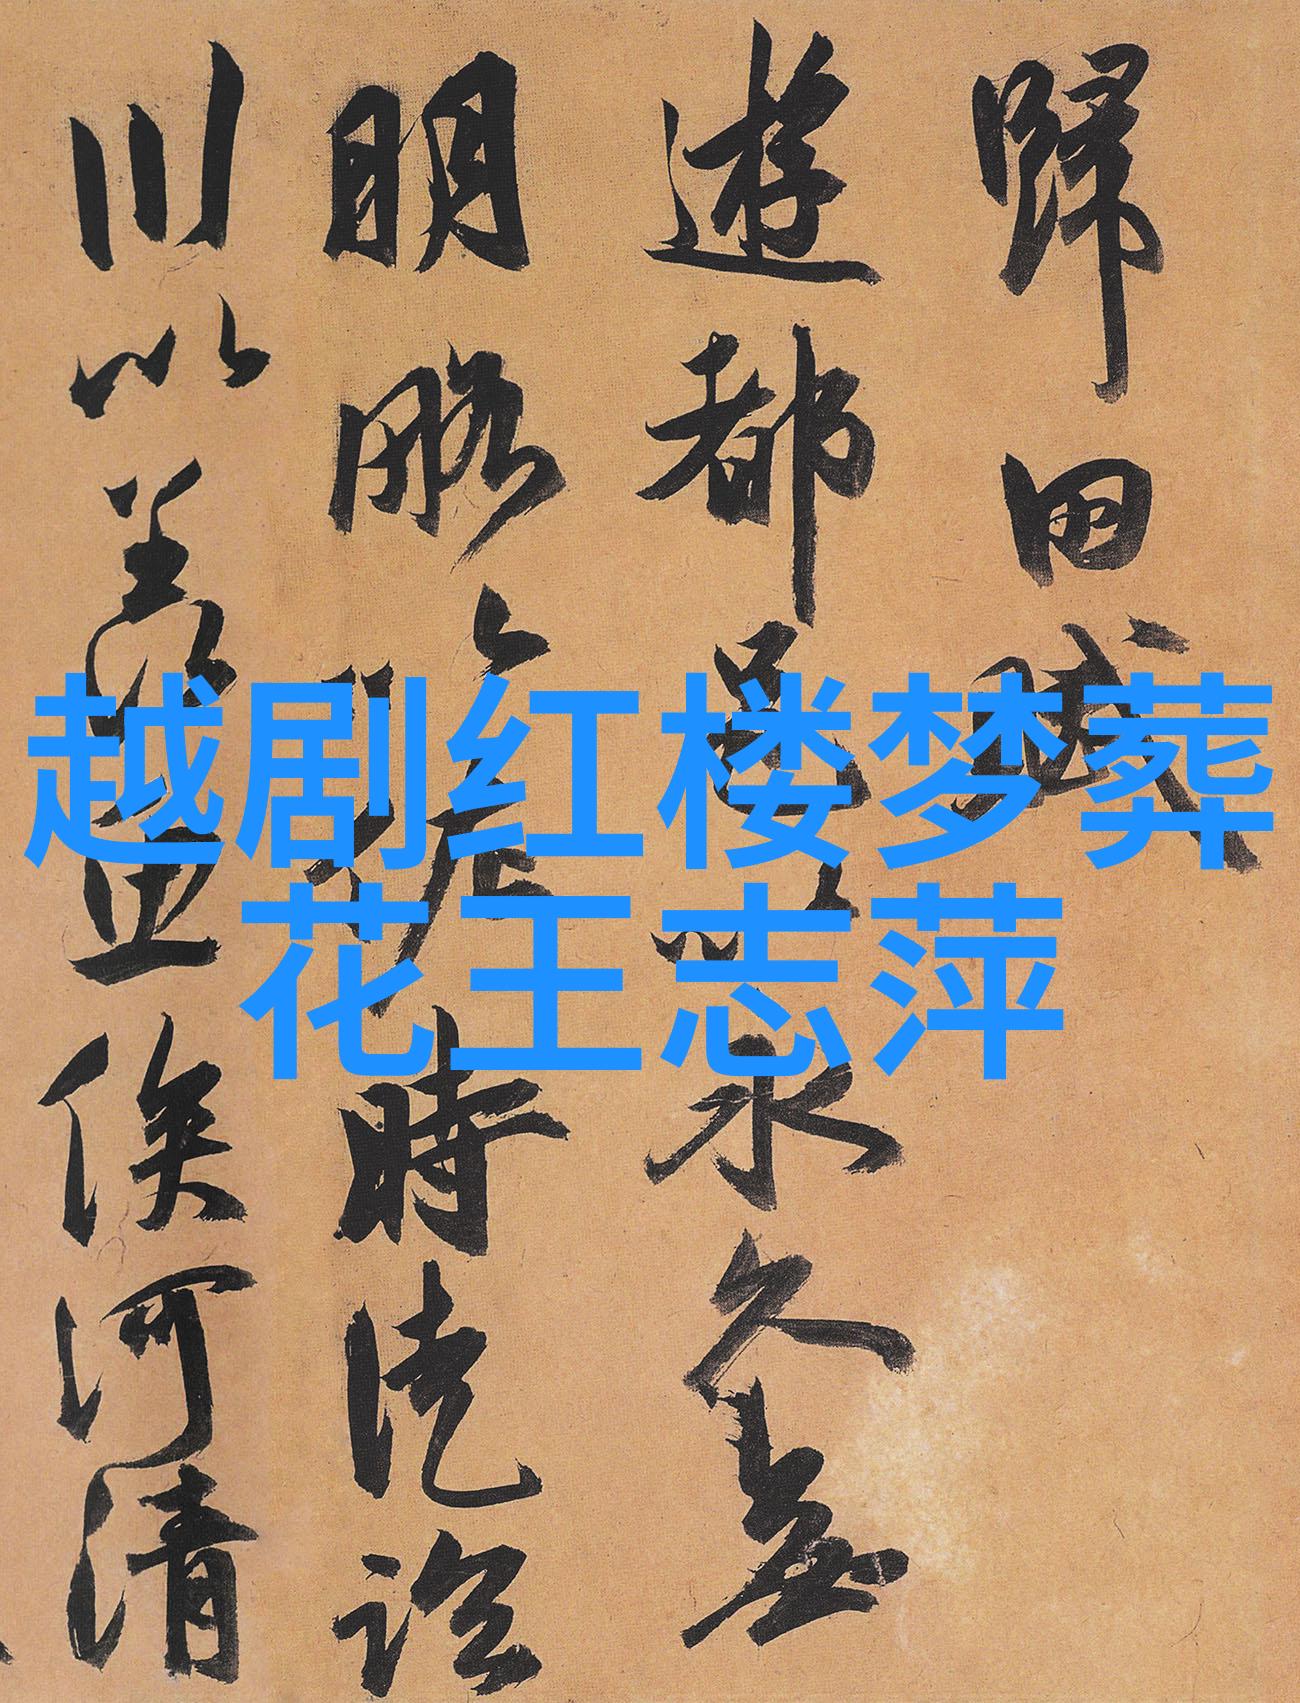 歸田賦
遊都邑以永久無
明略以佐時徒臨
川以羡魚俟河清
越剧红楼梦葬
花王志萍